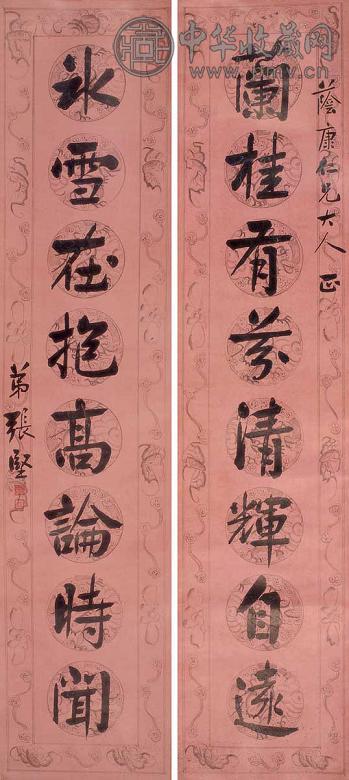 蘭桂有芬清輝自遠
蔭康仁兄大人 正
冰雪在抱高論時聞
弟張堅
中华收藏网